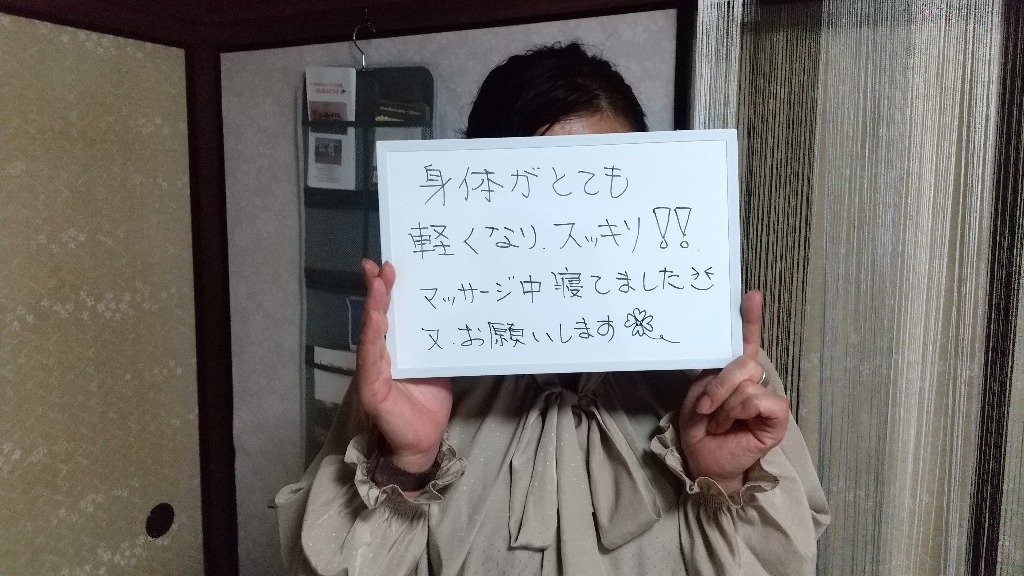 身体がとても
軽くなり、スッキリ!!
マッサージ中寝てました
又、お願いします